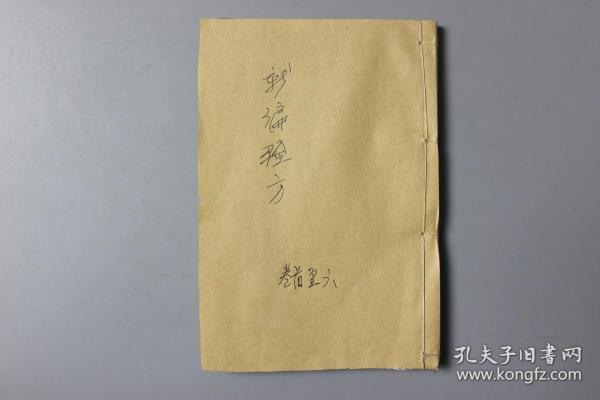 新编验方
卷首至六
孔夫子旧書网
www.kongfz.com